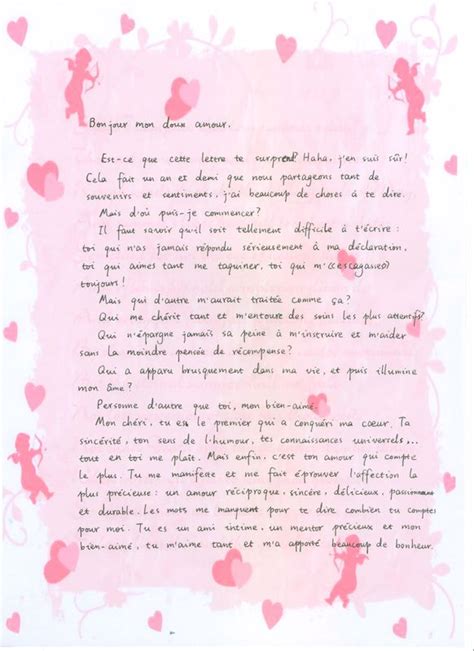 Bonjour mon doux amour,
Est-ce que cette lettre te surprend? Haha, j'en suis sûr!
Cela fait un an et demi que nous partageons tant de
souvenirs et sentiments, j'ai beaucoup de choses à te dire.
Mais d'où puis-je commencer?
Il faut savoir qu'il soit tellement difficile à t'écrire:
toi qui n'as jamais répondu sérieusement à ma déclaration,
toi qui aimes tant me taquiner, toi qui m'«escagasses»
toujours!
Mais qui d'autre m'aurait traitée comme ça?
Qui me chérit tant et m'entoure des soins les plus attentifs?
Qui n'épargne jamais sa peine à m'instruire et m'aider
sans la moindre pensée de récompense?
Qui a apparu brusquement dans ma vie, et puis illumine
mon âme?
Personne d'autre que toi, mon bien-aimé.
Mon chéri, tu es le premier qui a conquéri ma cœur. Ta
sincérité, ton sens de l'humour, tes connaissances universels,...
tout en toi me plaît. Mais enfin, c'est ton amour qui compte
le plus. Tu me manifeste et me fait éprouver l'affection la
plus précieuse: un amour réciproque, sincère, délicieux, passionnant
et durable. Les mots me manquent pour te dire combien tu comptes
pour moi. Tu es un ami intime, un mentor précieux et mon
bien-aimé, tu m'aime tant et m'a apporté beaucoup de bonheur.